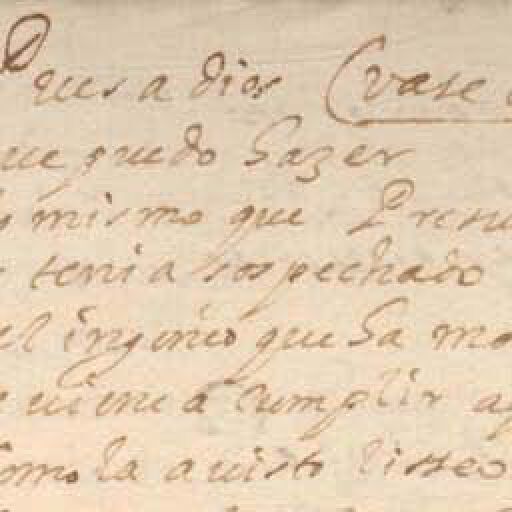 Pues a dios (vase
que puedo hazer
lo mismo que Presu
tenia sospechado
el ingenio que ha mo
viene a cumplir a
como la a visto liseo